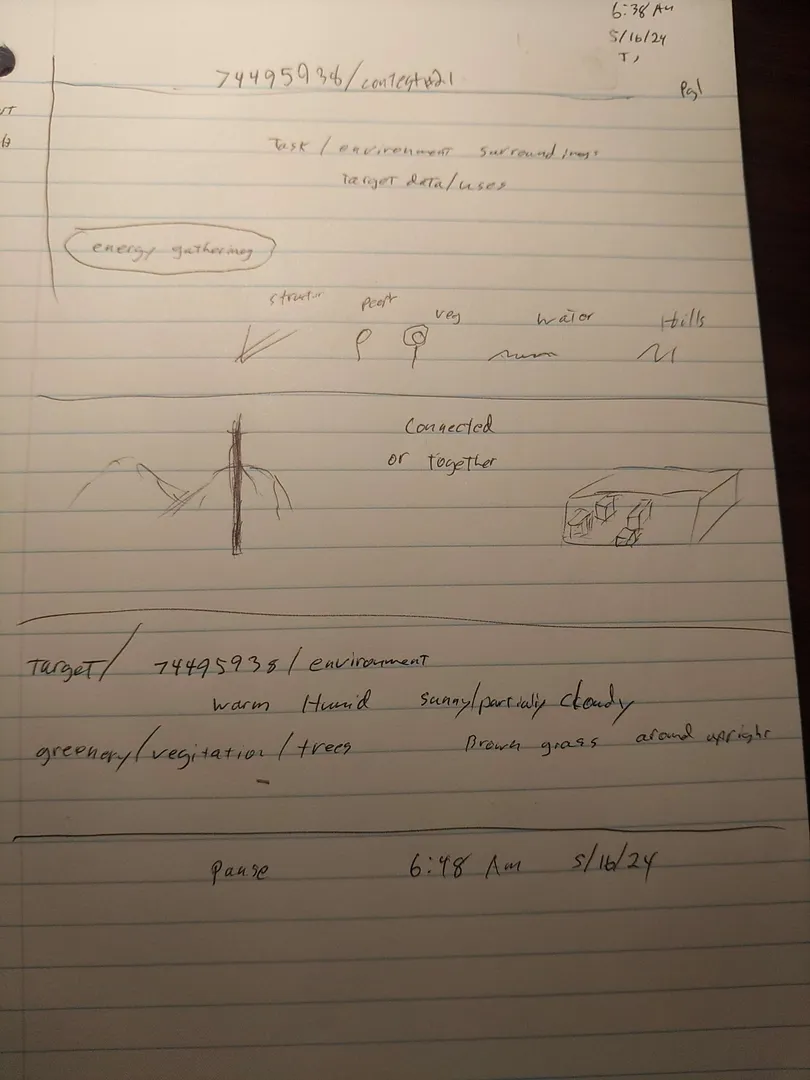 6:38 AM
5/16/24
T,
74495938/contest#21
Pg1
Task / environment surroundings
Target data/uses
energy gathering
veg
water
Hills
Connected
or together
Target/ 74495938/environment
warm Humid sunny/partially cloudy
greenery/vegitation/trees Brown grass around upright
Pause 6:48 Am 5/16/24